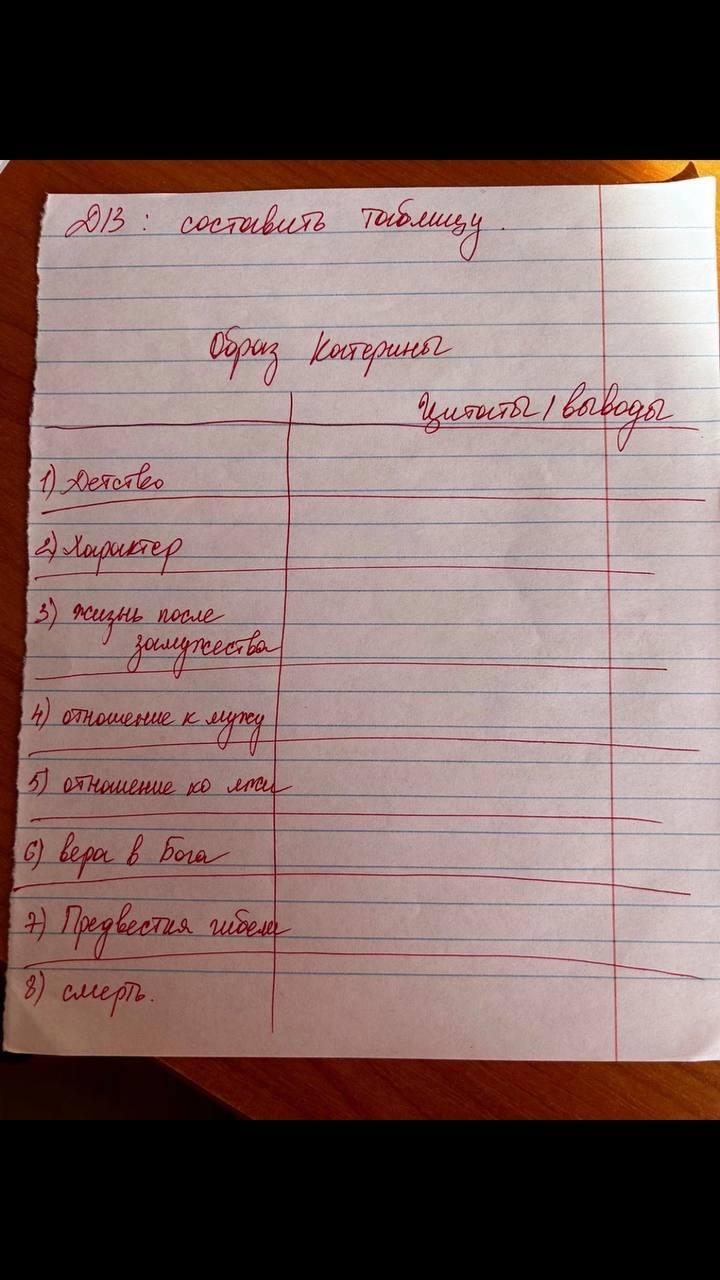 Д/З: составить таблицу.
Образ Катерины
Цитаты / выводы
1) Детство
2) Характер
3) жизнь после
замужества
4) отношение к мужу
5) отношение ко лжи
6) вера в Бога
7) Предвестия гибели
8) смерть.